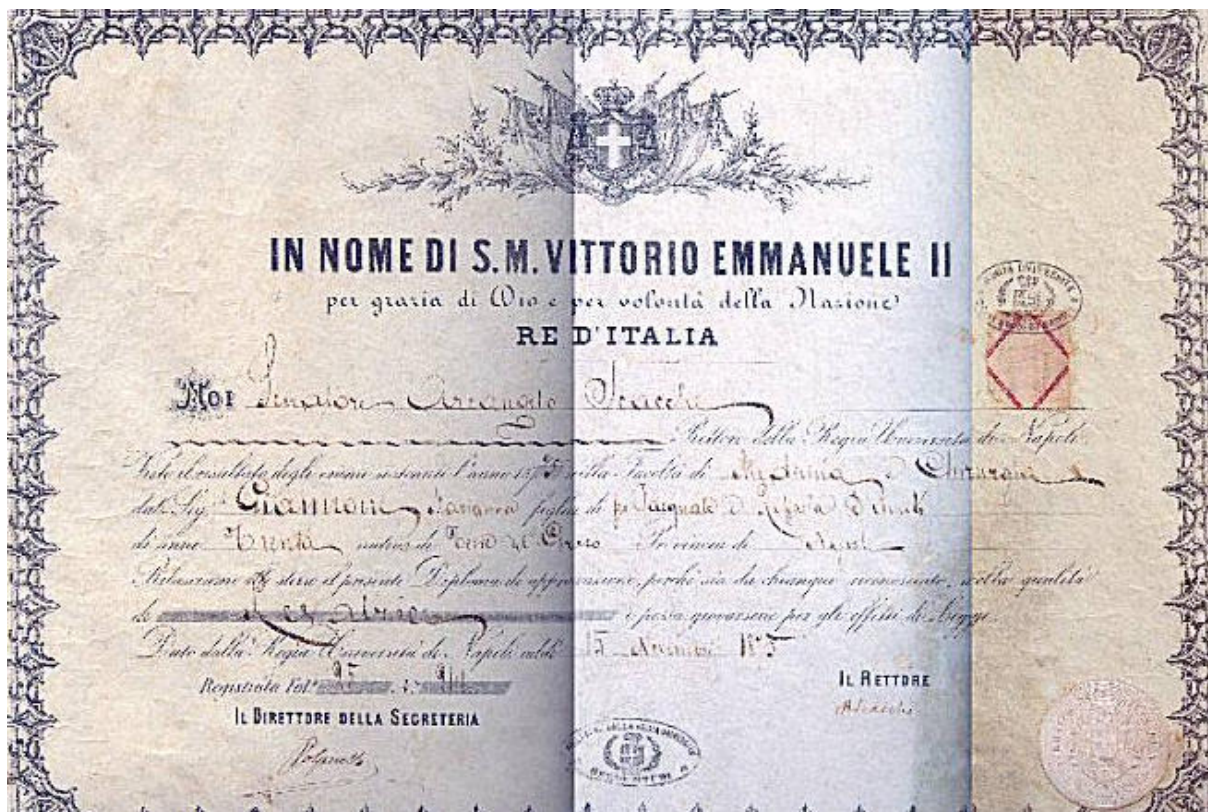 IN NOME DI S.M. VITTORIO EMMANUELE II
per grazia di Dio e per volontà della Nazione
RE D'ITALIA
Noi Senatore Arcangelo Scacchi
Rettore della Regia Università di Napoli
Visto il risultato degli esami sostenuti l'anno 1875 nella Facoltà di Medicina e Chirurgia
dal Sig.ra Giannoni figlia di Pasquale
di anni Trenta nativa di Torre del Greco Provincia di Napoli
Rilasciamo il presente Diploma di approvazione, perchè sia da chiunque riconosciuta, colla qualità
di Levatrice e possa giovarsene per gli effetti di Legge.
Dato dalla Regia Università di Napoli addì 15 1875
Registrata Fol.
IL RETTORE
AScacchi
IL DIRETTORE DELLA SEGRETERIA